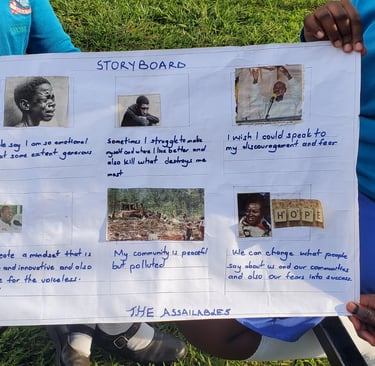 STORYBOARD
say I am so emotional
at some extent generous
Sometimes I struggle to make
myself and where I live better and
also kill what destroys me
most
I wish I could speak to
my discouragement and fear
a mindset that is
and innovative and also
for the voiceless.
My community is peaceful
but polluted
HOPE
We can change what people
say about us and our communities
and also our fears into success.
THE ASSAILABLES